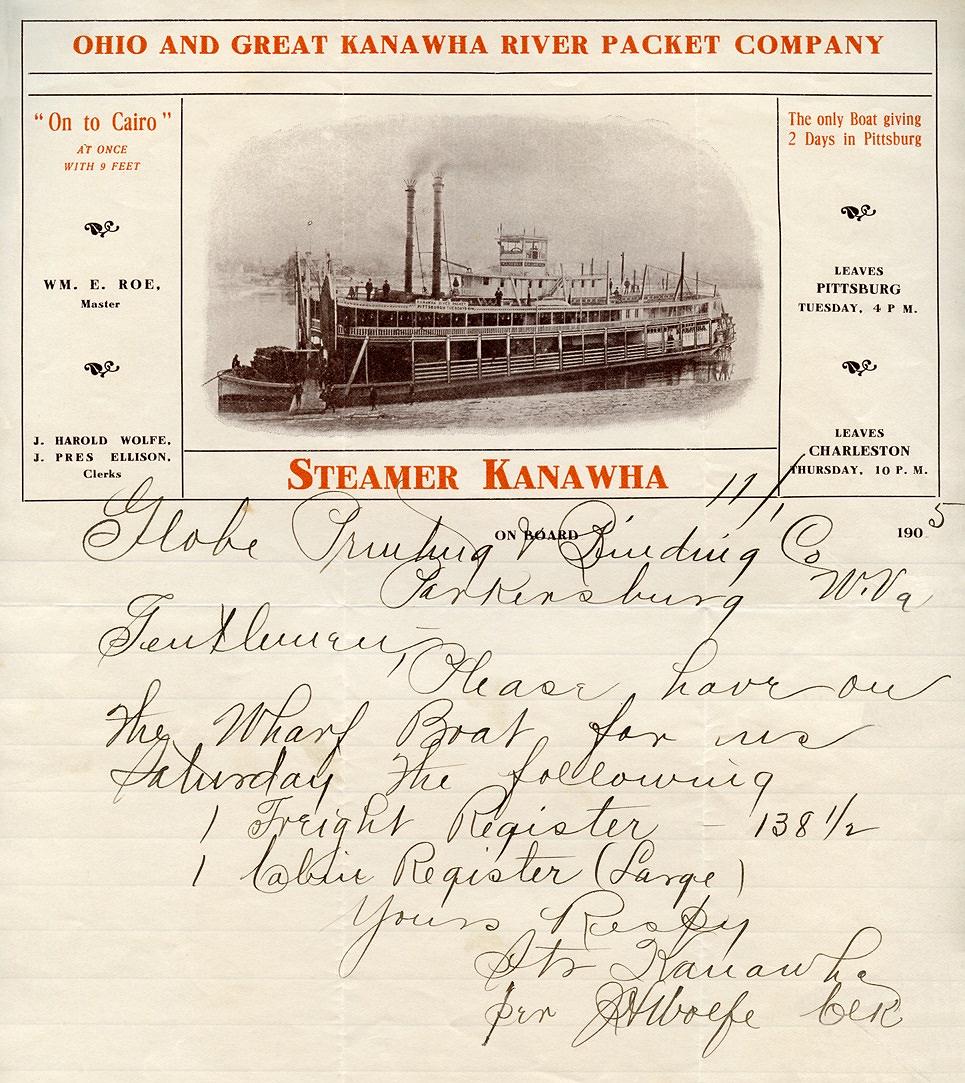 OHIO AND GREAT KANAWHA RIVER PACKET COMPANY
"On to Cairo"
AT ONCE
WITH 9 FEET
WM. E. ROE,
Master
J. HAROLD WOLFE,
J. PRES ELLISON,
Clerks
The only Boat giving
2 Days in Pittsburg
LEAVES
PITTSBURG
TUESDAY, 4 P M.
LEAVES
CHARLESTON
THURSDAY, 10 P. M.
STEAMER KANAWHA
ON BOARD 11/1 1905
Globe Printing & Binding Co
Parkersburg W.Va
Gentlemen,
Please have on
the Wharf Boat for us
Saturday the following
1 Freight Register – 138 1/2
1 Cabin Register (Large)
Yours Respy
Str Kanawha
per JHWolfe Clk